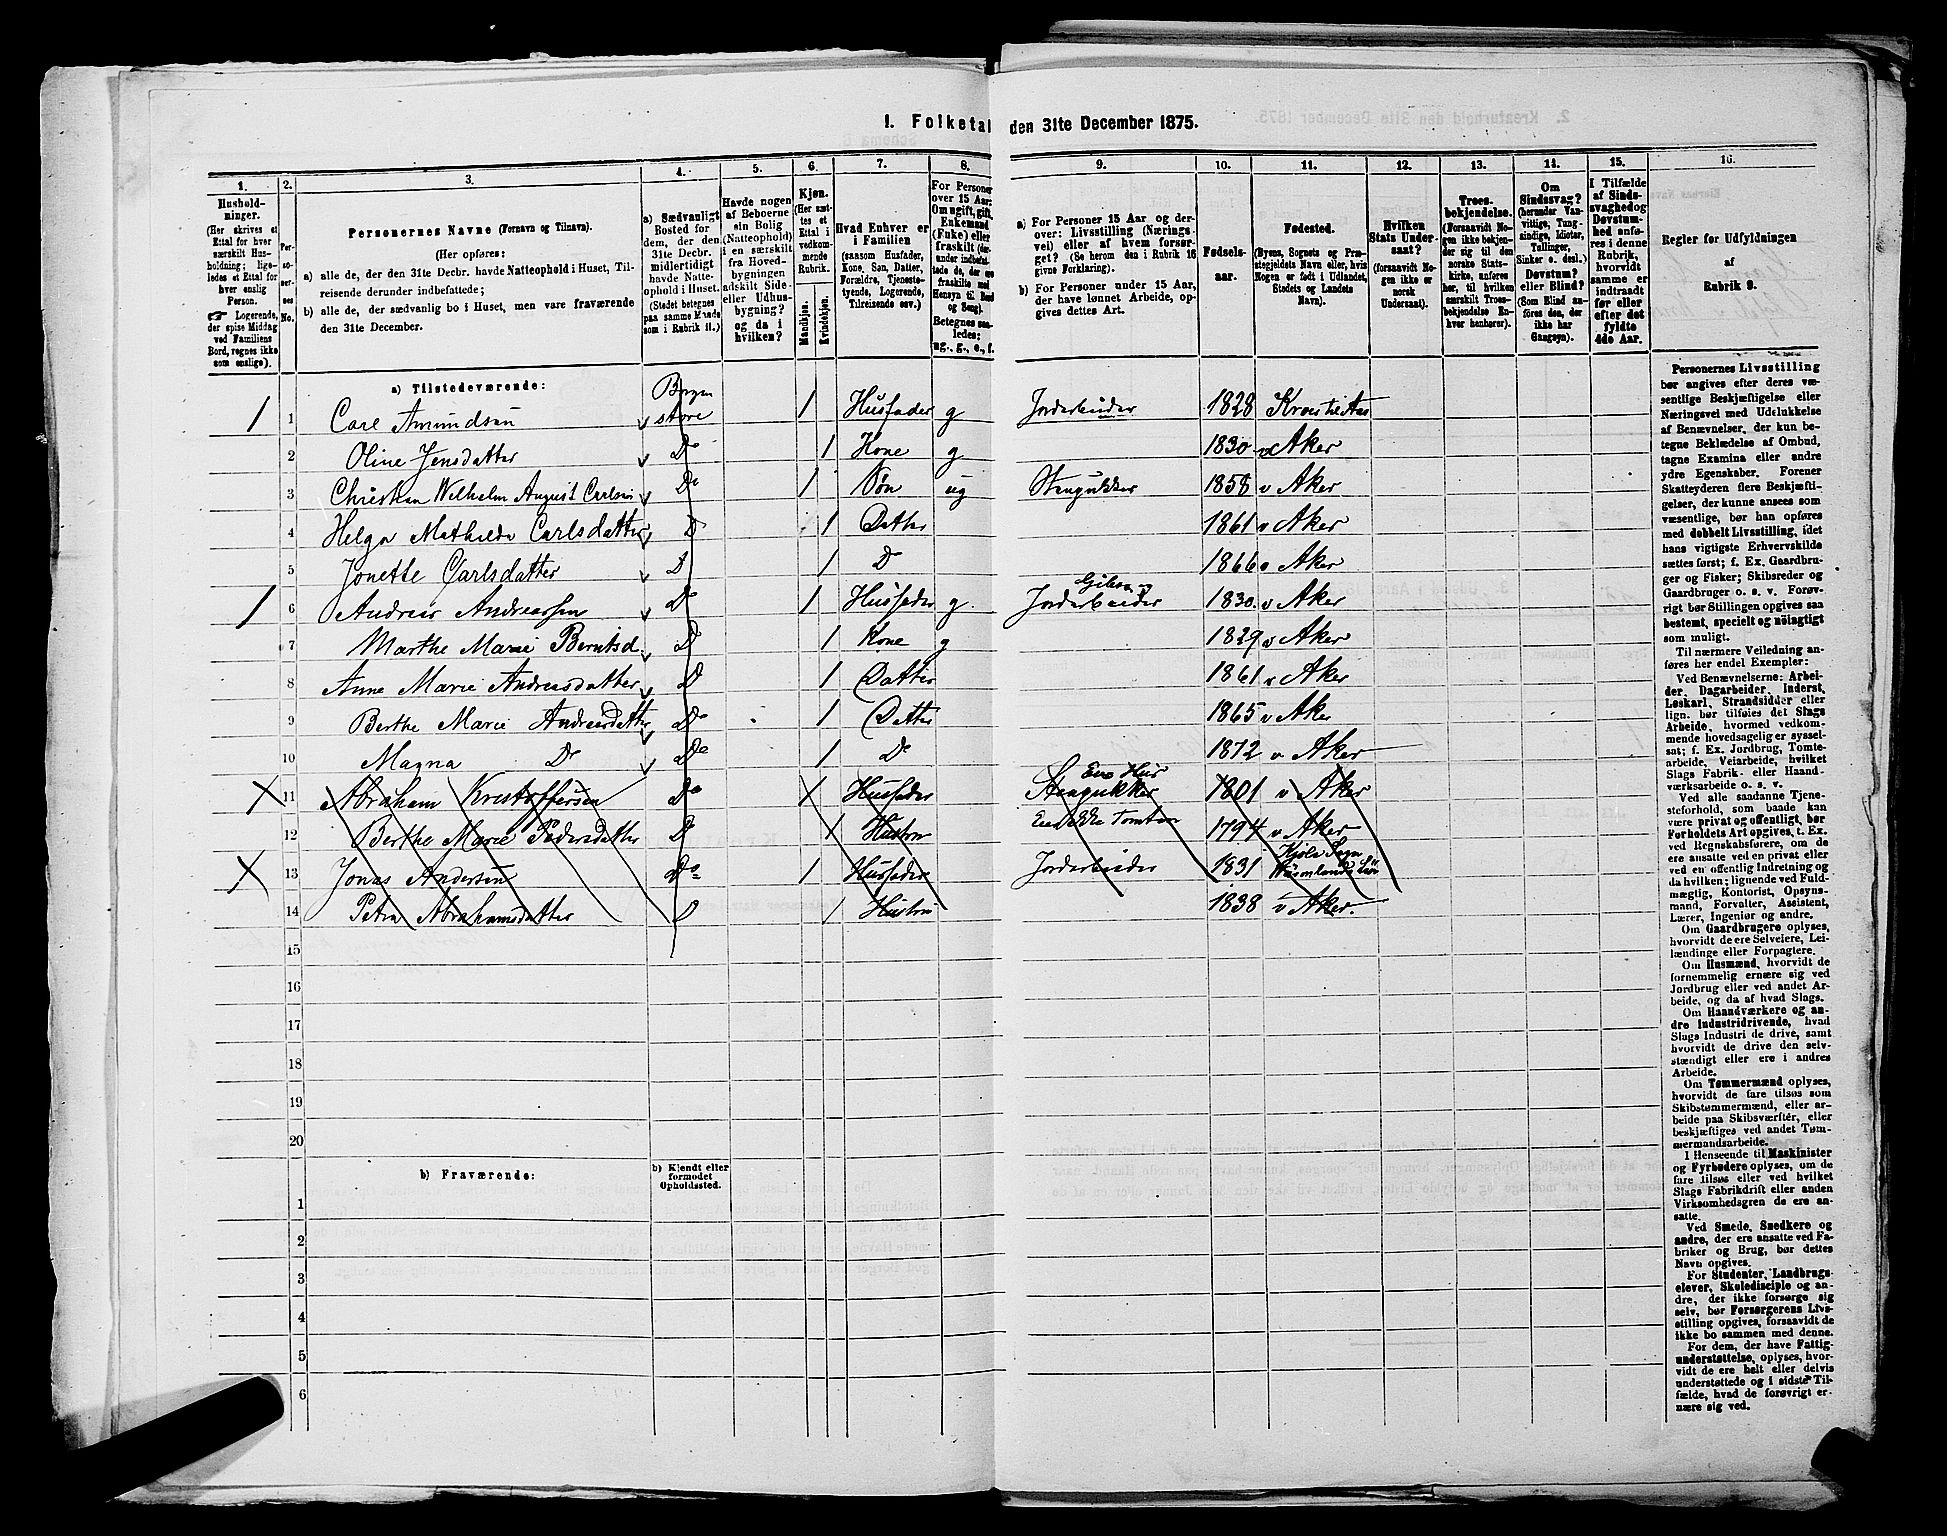 I. Folketal den 31te December 1875.
1. 2. 3. 4. 5. 6. 7. 8. 9. 10. 11. 12. 13. 14. 15. 16.
Husholdninger.
(Her skrives et Ettal for hver særskilt Husholdning; ligeledes et Ettal for hver enslig Person.
☞ Logerende, der spise Middag ved Familiens Bord, regnes ikke som enslige).
Personernes No.
Personernes Navne (Fornavn og Tilnavn).
(Her opføres:
a) alle de, der den 31te Decbr. havde Natteophold i Huset, Tilreisende derunder indbefattede;
b) alle de, der sædvanlig bo i Huset, men vare fraværende den 31te December.
a) Sædvanligt Bosted for dem, der den 31te Decbr. midlertidigt havde Natteophold i Huset. (Stedet betegnes paa samme Maade som i Rubrik 11.)
Havde nogen af Beboerne sin Bolig (Natteophold) i en særskilt fra Hovedbygningen adskilt Side- eller Udhusbygning? og da i hvilken?
Kjøn. (Her sættes et Ettal i vedkommende Rubrik.
Mandkjøn. Kvindekjøn.
Hvad Enhver er i Familien (saasom Husfader, Kone, Søn, Datter, Forældre, Tjenestetyende, Logerende, Tilreisende osv.)
For Personer over 15 Aar: Om ugift, gift, Enkemand (Enke) eller fraskilt
Betegnes saaledes: ug., g., e., f.
a) For Personer 15 Aar og derover: Livsstilling (Næringsvei) eller af hvem forsørget? (Se herom den i Rubrik 16 givne Forklaring).
b) For Personer under 15 Aar, der have lønnet Arbeide, opgives dettes Art.
Fødselsaar.
Fødested.
(Byens, Sognets og Præstegjeldets Navn eller, hvis Nogen er født i Udlandet, Stedets og Landets Navn).
Hvilken Stats Undersaat?
(forsaavidt Nogen ikke er norsk Undersaat).
Troesbekjendelse.
(Forsaavidt Nogen ikke bekjender sig til den norske Statskirke, anføres her, til hvilken særskilt Troesbekjendelse Enhver henhører).
Om Sindssvag? (herunder Vanvittige, Tungsindige, Idioter, Tullinger, Sinker o. desl.) Døvstum? eller Blind? (Som Blind anføres den, der ikke har Gangsyn).
I Tilfælde af Sindssvaghed og Døvstumhed anføres i denne Rubrik, hvorvidt samme er indtraadt før eller efter det fyldte 4de Aar.
Regler for Udfyldningen
af
Rubrik 9.
a) Tilstedeværende:
1 1 Carl Amundsen store 1 Husfader g Jordarbeider 1828
2 Oline Jensdatter Do 1 Kone g 1830 Aker
3 Christian Wilhelm August Carlsen Do 1 Søn ug 1858 Aker
4 Helga Mathilde Carlsdatter D 1 Datter 1861 Aker
5 Jonette Carlsdatter D 1 D 1866 Aker
1 6 Andreas Andreassen Do 1 Husfader g. Jordarbeider 1830. Aker
7 Marthe Marie Berntsd. D 1 Kone g 1829 Aker
8 Anne Marie Andreasdatter D 1 Datter 1861 Aker
9 Berthe Marie Andreasdatter Do 1 Datter 1865 Aker
10 Magna Do Do 1 Do 1872 Aker
11 Abraham Kristoffersen Do 1 Husfader Stenpukker 1801 Aker
12 Berthe Marie Pedersdatter D 1 Hustru 1794 Aker
13 Jonas Andersen Do 1 Husfader Jordarbeider 1831
14 Petra Abrahamsdatter D 1 Hustru 1838 Aker.
15
16
17
18
19
20
b) Fraværende:
b) Kjendt eller formodet Opholdssted.
1
2
3
4
5
6
Personernes Livsstilling
bør angives efter deres væ-
sentlige Beskjæftigelse eller
Næringsvei med Udelukkelse
af Benævnelser, der kun be-
tegne Beklædelse af Ombud,
tagne Examina eller andre
ydre Egenskaber. Forener
Skatteyderen flere Beskjæfti-
gelser, der kunne ansees som
væsentlige, bør han opføres
med dobbelt Livsstilling, idet
hans vigtigste Erhvervskilde
sættes først; f. Ex. Gaardbru-
ger og Fisker; Skibsreder og
Gaardbruger o. s. v. Forøv-
rigt bør Stillingen opgives saa
bestemt, specielt og nøiagtigt
som muligt.
Til nærmere Veiledning an-
føres her endel Exempler:
Ved Benævnelserne: Arbei-
der, Dagarbeider, Inderst,
Løskarl, Strandsidder eller
lign. bør tilføies det Slags
Arbeide, hvormed vedkom-
mende hovedsagelig er syssel-
sat; f. Ex. Jordbrug, Tomte-
arbeide, Veiarbeide, hvilket
Slags Fabrik- eller Haand-
værksarbeide o. s. v.
Ved alle saadanne Tjene-
steforhold, som baade kan
være privat og offentligt, bør
Forholdets Art opgives, t. Ex.
ved Regnskabsførere, om de
ere ansatte ved en privat eller
ved en offentlig Indretning og
da hvilken; lignende ved Fuld-
mægtig, Kontorist, Opsyns-
mand, Forvalter, Assistent,
Lærer, Ingeniør og andre.
Om Gaardbrugere oplyses,
hvorvidt de ere Selveiere, Lei-
lændinge eller Forpagtere.
Om Husmænd, hvorvidt de
fornemmelig ernære sig ved
Jordbrug eller ved andet Ar-
beide, og da af hvad Slags.
Om Haandværkere og an-
dre Industridrivende, hvad
Slags Industri de drive, samt
hvorvidt de drive den selv-
stændigt eller ere i andres
Arbeide.
Om Tømmermænd oplyses,
hvorvidt de fare tilsøs som
Skibstømmermænd, eller ar-
beide paa Skibsværfter, eller
beskjæftiges ved andet Tøm-
mermandsarbeide.
I Henseende til Maskinister
og Fyrbødere oplyses, om de
fare tilsøs eller ved hvilket
Slags Fabrikdrift eller anden
Virksomhedsgren de ere an-
satte.
Ved Smede, Snedkere og
andre, der ere ansatte ved Fa-
briker og Brug, bør dettes
Navn opgives.
For Studenter, Landbrugs-
elever, Skoledisciple og an-
dre, der ikke forsørge sig
selv, bør Forsørgerens Livs-
stilling opgives, forsaavidt de
ikke bo sammen med denne.
For dem, der have Fattig-
understøttelse, oplyses, hvor-
vidt de ere helt eller delvis
understøttede og i sidste Til-
fælde, hvad de forøvrigt er-
nære sig ved.